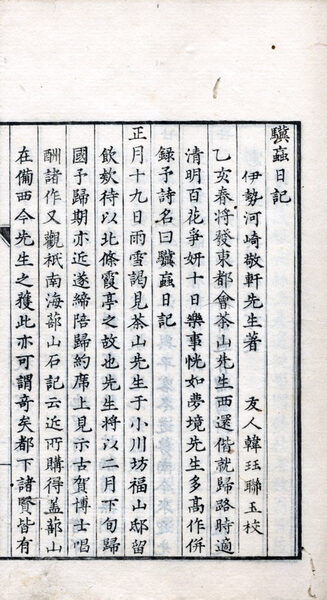 驥蝨日記
伊勢河崎敬軒先生著　友人韓珏聯玉校
乙亥春將發東都會茶山先生西還偕就歸路時適
清明百花爭妍十日樂事恍如夢境先生多高作併
録予詩名曰驥蝨日記
正月十九日雨雪謁見茶山先生于小川坊福山邸留
飲欵待以北條霞亭之故也先生將以二月下旬歸
國予歸期亦近遂締陪歸約席上見示古賀博士唱
酬諸作又觀祇南海蔀山石記云近所購得盖蔀山
在備西今先生之獲此亦可謂奇矣都下諸賢皆有